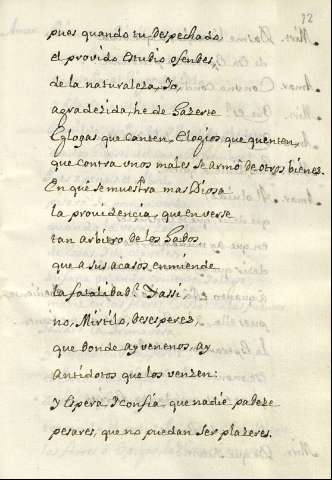 12
pues quando tu despechado
el provido estudio ofendes,
de la naturaleza, Yo
agradezida, he de hazerte
Eglogas que canten, Elogios que quenten,
que contra unos males se armó de otros bienes.
En qué se muestra mas Diosa
la providençia, que en verse
tan arbitro de los hados
que a sus acasos enmiende
la fatalidad? Yassi
no, Mirtilo, desesperes,
que donde ay venenos ay
Antidotos que los venzen:
y espera, Y confia que nadie padeze
pesares, que no puedan ser plazeres.